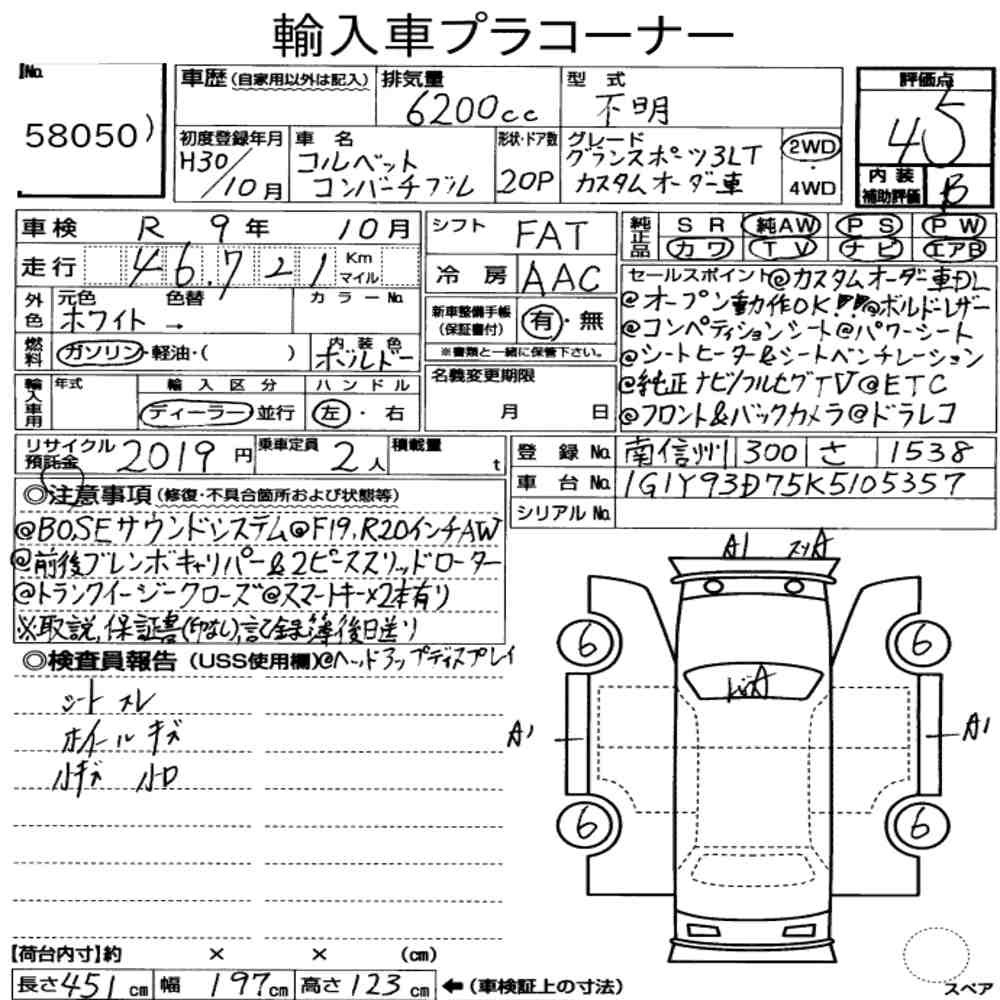 輸入車プラコーナー
No.
58050)
車歴(自家用以外は記入)
排気量
6200cc
型式
不明
評価点
4.5
初度登録年月
H30/10月
車名
コルベット
コンバーチブル
形状・ドア数
20P
グレード
グランスポーツ3LT
カスタムオーダー車
2WD
4WD
内装
補助評価
B
車検 R 9年 10月
走行 46,721 Km マイル
シフト FAT
冷房 AAC
純正品 SR 純AW PS PW
カワ TV ナビ エアB
外色
元色 色替 カラーNo.
ホワイト →
燃料
ガソリン・軽油・( )
内装色
ボルドー
新車整備手帳
(保証書付)
有・無
※書類と一緒に保管下さい。
セールスポイント@カスタムオーダー車DL
@オープン動作OK!!!@ボルドーレザー
@コンペティションシート@パワーシート
@シートヒーター&シートベンチレーション
@純正ナビ/フルセグTV@ETC
@フロント&バックカメラ@ドラレコ
輸入車用
年式
輸入区分
ハンドル
ディーラー・並行
左・右
名義変更期限
月 日
リサイクル
預託金
2019円
乗車定員
2人
積載量
t
登録No. 南信州 300 さ 1538
車台No. 1G1Y93D75K5105357
シリアルNo.
◎注意事項(修復・不具合箇所および状態等)
@BOSEサウンドシステム@F19,R20インチAW
@前後ブレンボキャリパー&2ピーススリッドローター
@トランクイージークローズ@スマートキー×2本有り
※取説,保証書(印なし),記録簿後日送り
◎検査員報告(USS使用欄)@ヘッドアップディスプレイ
シート スレ
ホイール キズ
小キズ 小口
A1 スリA
6
6
A1
A1
6
6
【荷台内寸】約 × × (cm)
長さ451cm 幅197cm 高さ123cm ←(車検証上の寸法)
スペア